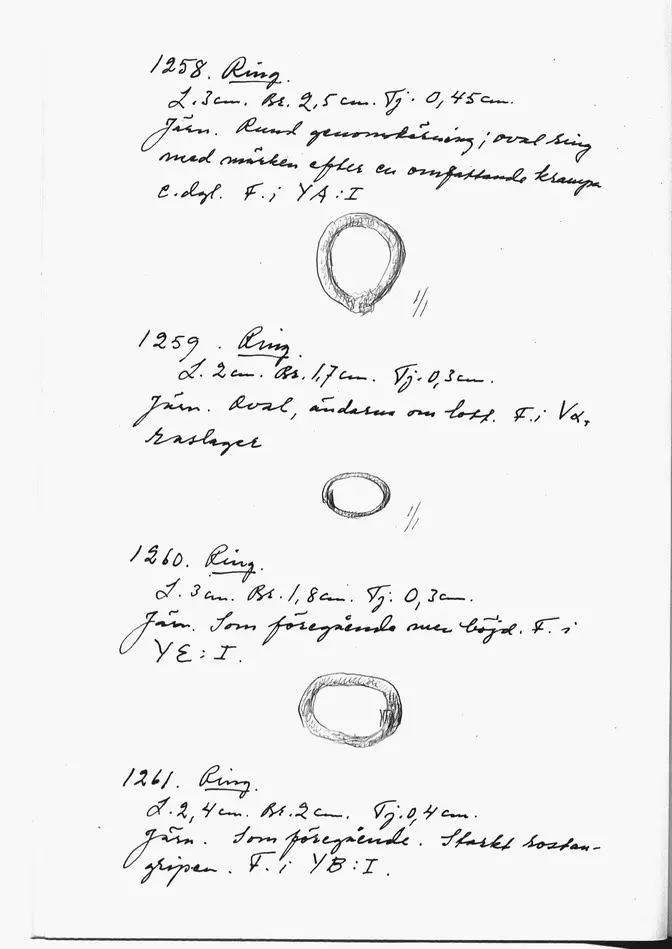 1258. Ring.
L. 3cm. Br. 2,5 cm. Tj. 0,45 cm.
Järn. Rund genomskärning; oval ring
med märken efter en omfattande krampa
e.dyl. F. i YA:I
1/1
1259. Ring.
L. 2 cm. Br. 1,7 cm. Tj. 0,3 cm.
Järn. Oval, ändarna om lott. F. i Vα,
raslager
1/1
1260. Ring.
L. 3 cm. Br. 1,8 cm. Tj. 0,3 cm.
Järn. Som föregående men böjd. F. i
YE:I.
1261. Ring.
L. 2,4 cm. Br. 2 cm. Tj. 0,4 cm.
Järn. Som föregående. Starkt rostan-
gripen. F. i YB:I.